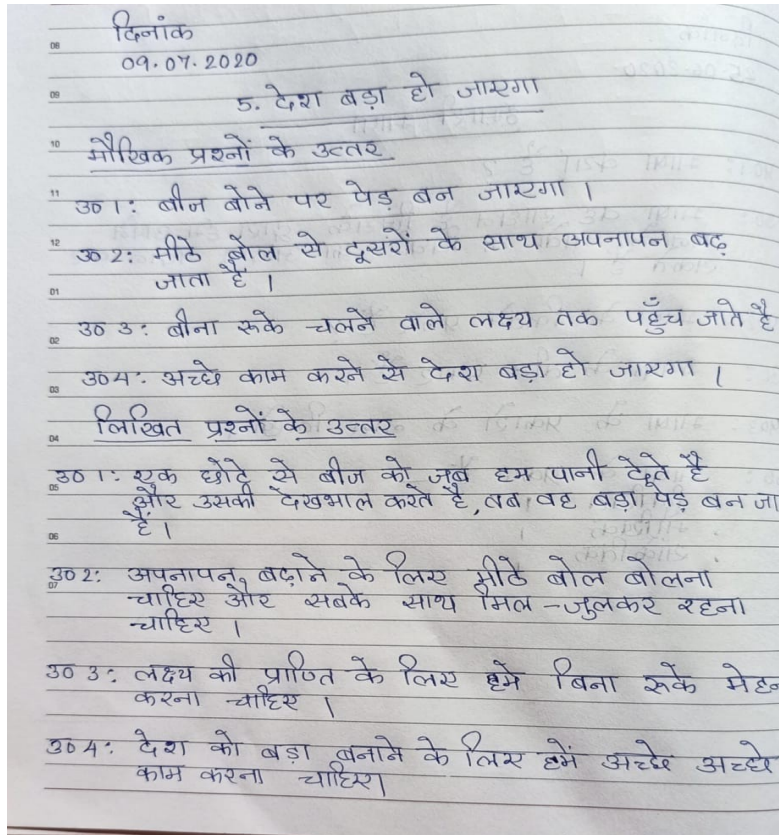 दिनांक
09.07.2020
5. देश बड़ा हो जाएगा
मौखिक प्रश्नों के उत्तर
उ० 1: बीज बोने पर पेड़ बन जाएगा ।
उ० 2: मीठे बोल से दूसरों के साथ अपनापन बढ़
जाता है ।
उ० 3: बीना रूके चलने वाले लक्ष्य तक पहुँच जाते है
उ० 4: अच्छे काम करने से देश बड़ा हो जाएगा ।
लिखित प्रश्नों के उत्तर
उ० 1: एक छोटे से बीज को जब हम पानी देते है
और उसकी देखभाल करते है, तब वह बड़ा पेड़ बन जा
है ।
उ० 2: अपनापन बढ़ाने के लिए मीठे बोल बोलना
चाहिए और सबके साथ मिल-जुलकर रहना
चाहिए ।
उ० 3: लक्ष्य की प्राप्ति के लिए हमे बिना रूके मेहन
करना चाहिए ।
उ० 4: देश को बड़ा बनाने के लिए हमें अच्छे अच्छे
काम करना चाहिए।
08
09
10
11
12
01
02
03
04
05
06
07